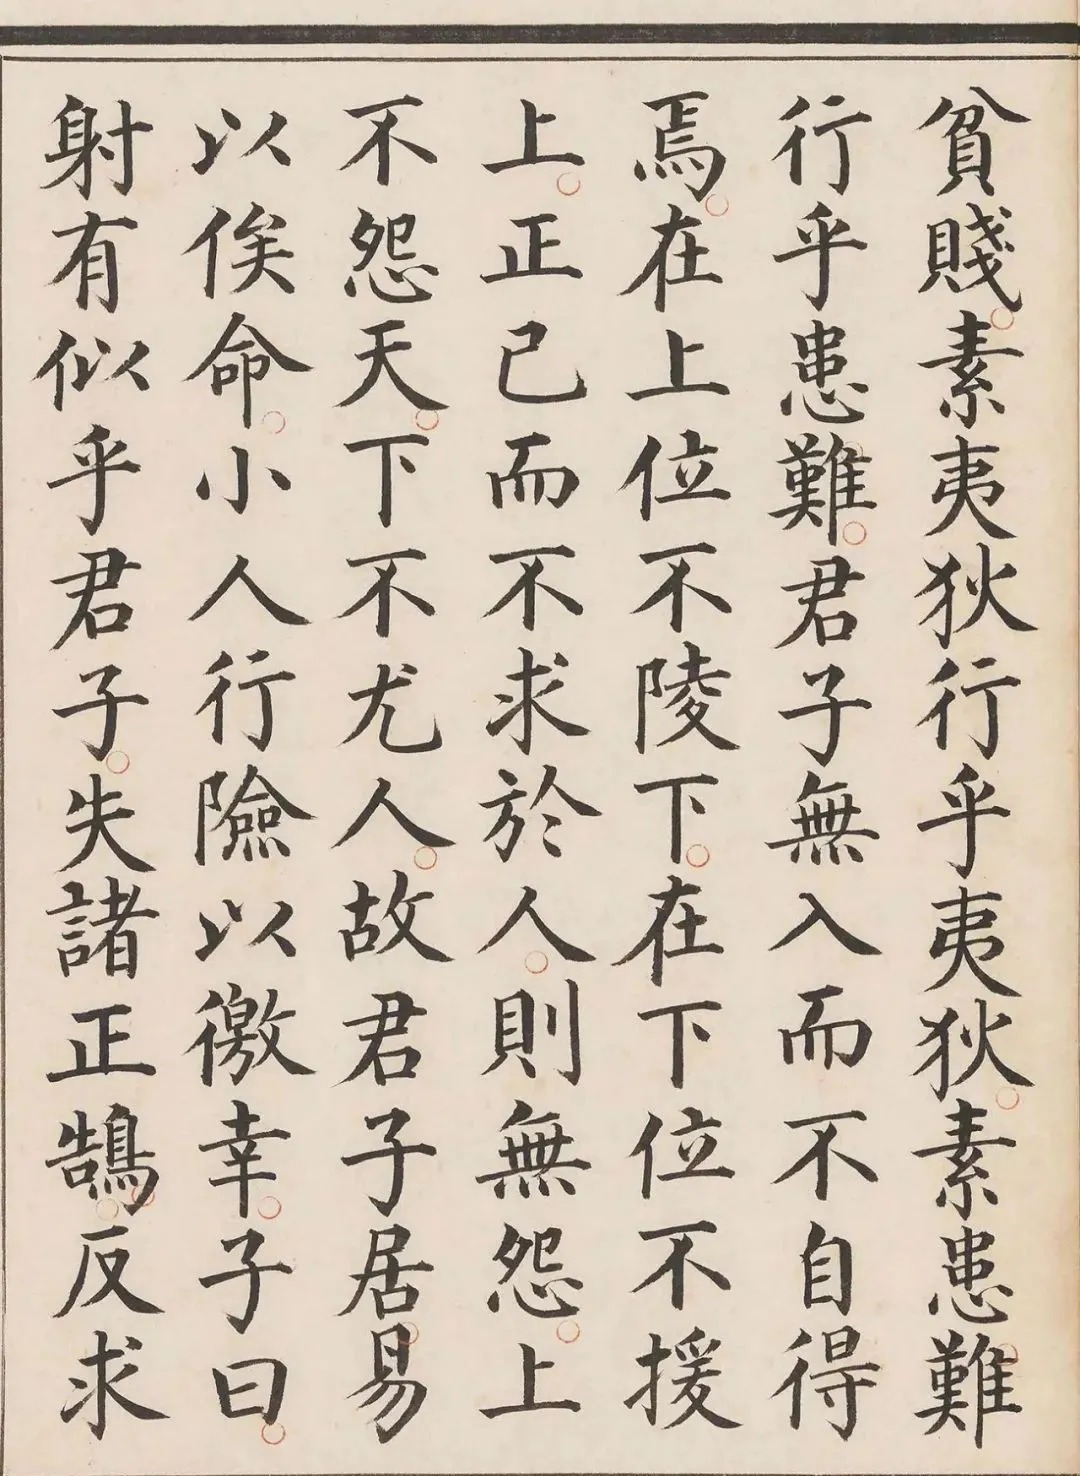 貧賤。素夷狄行乎夷狄。素患難
行乎患難。君子無入而不自得
焉。在上位不陵下。在下位不援
上。正己而不求於人。則無怨。上
不怨天。下不尤人。故君子居易
以俟命。小人行險以徼幸。子曰。
射有似乎君子。失諸正鵠。反求